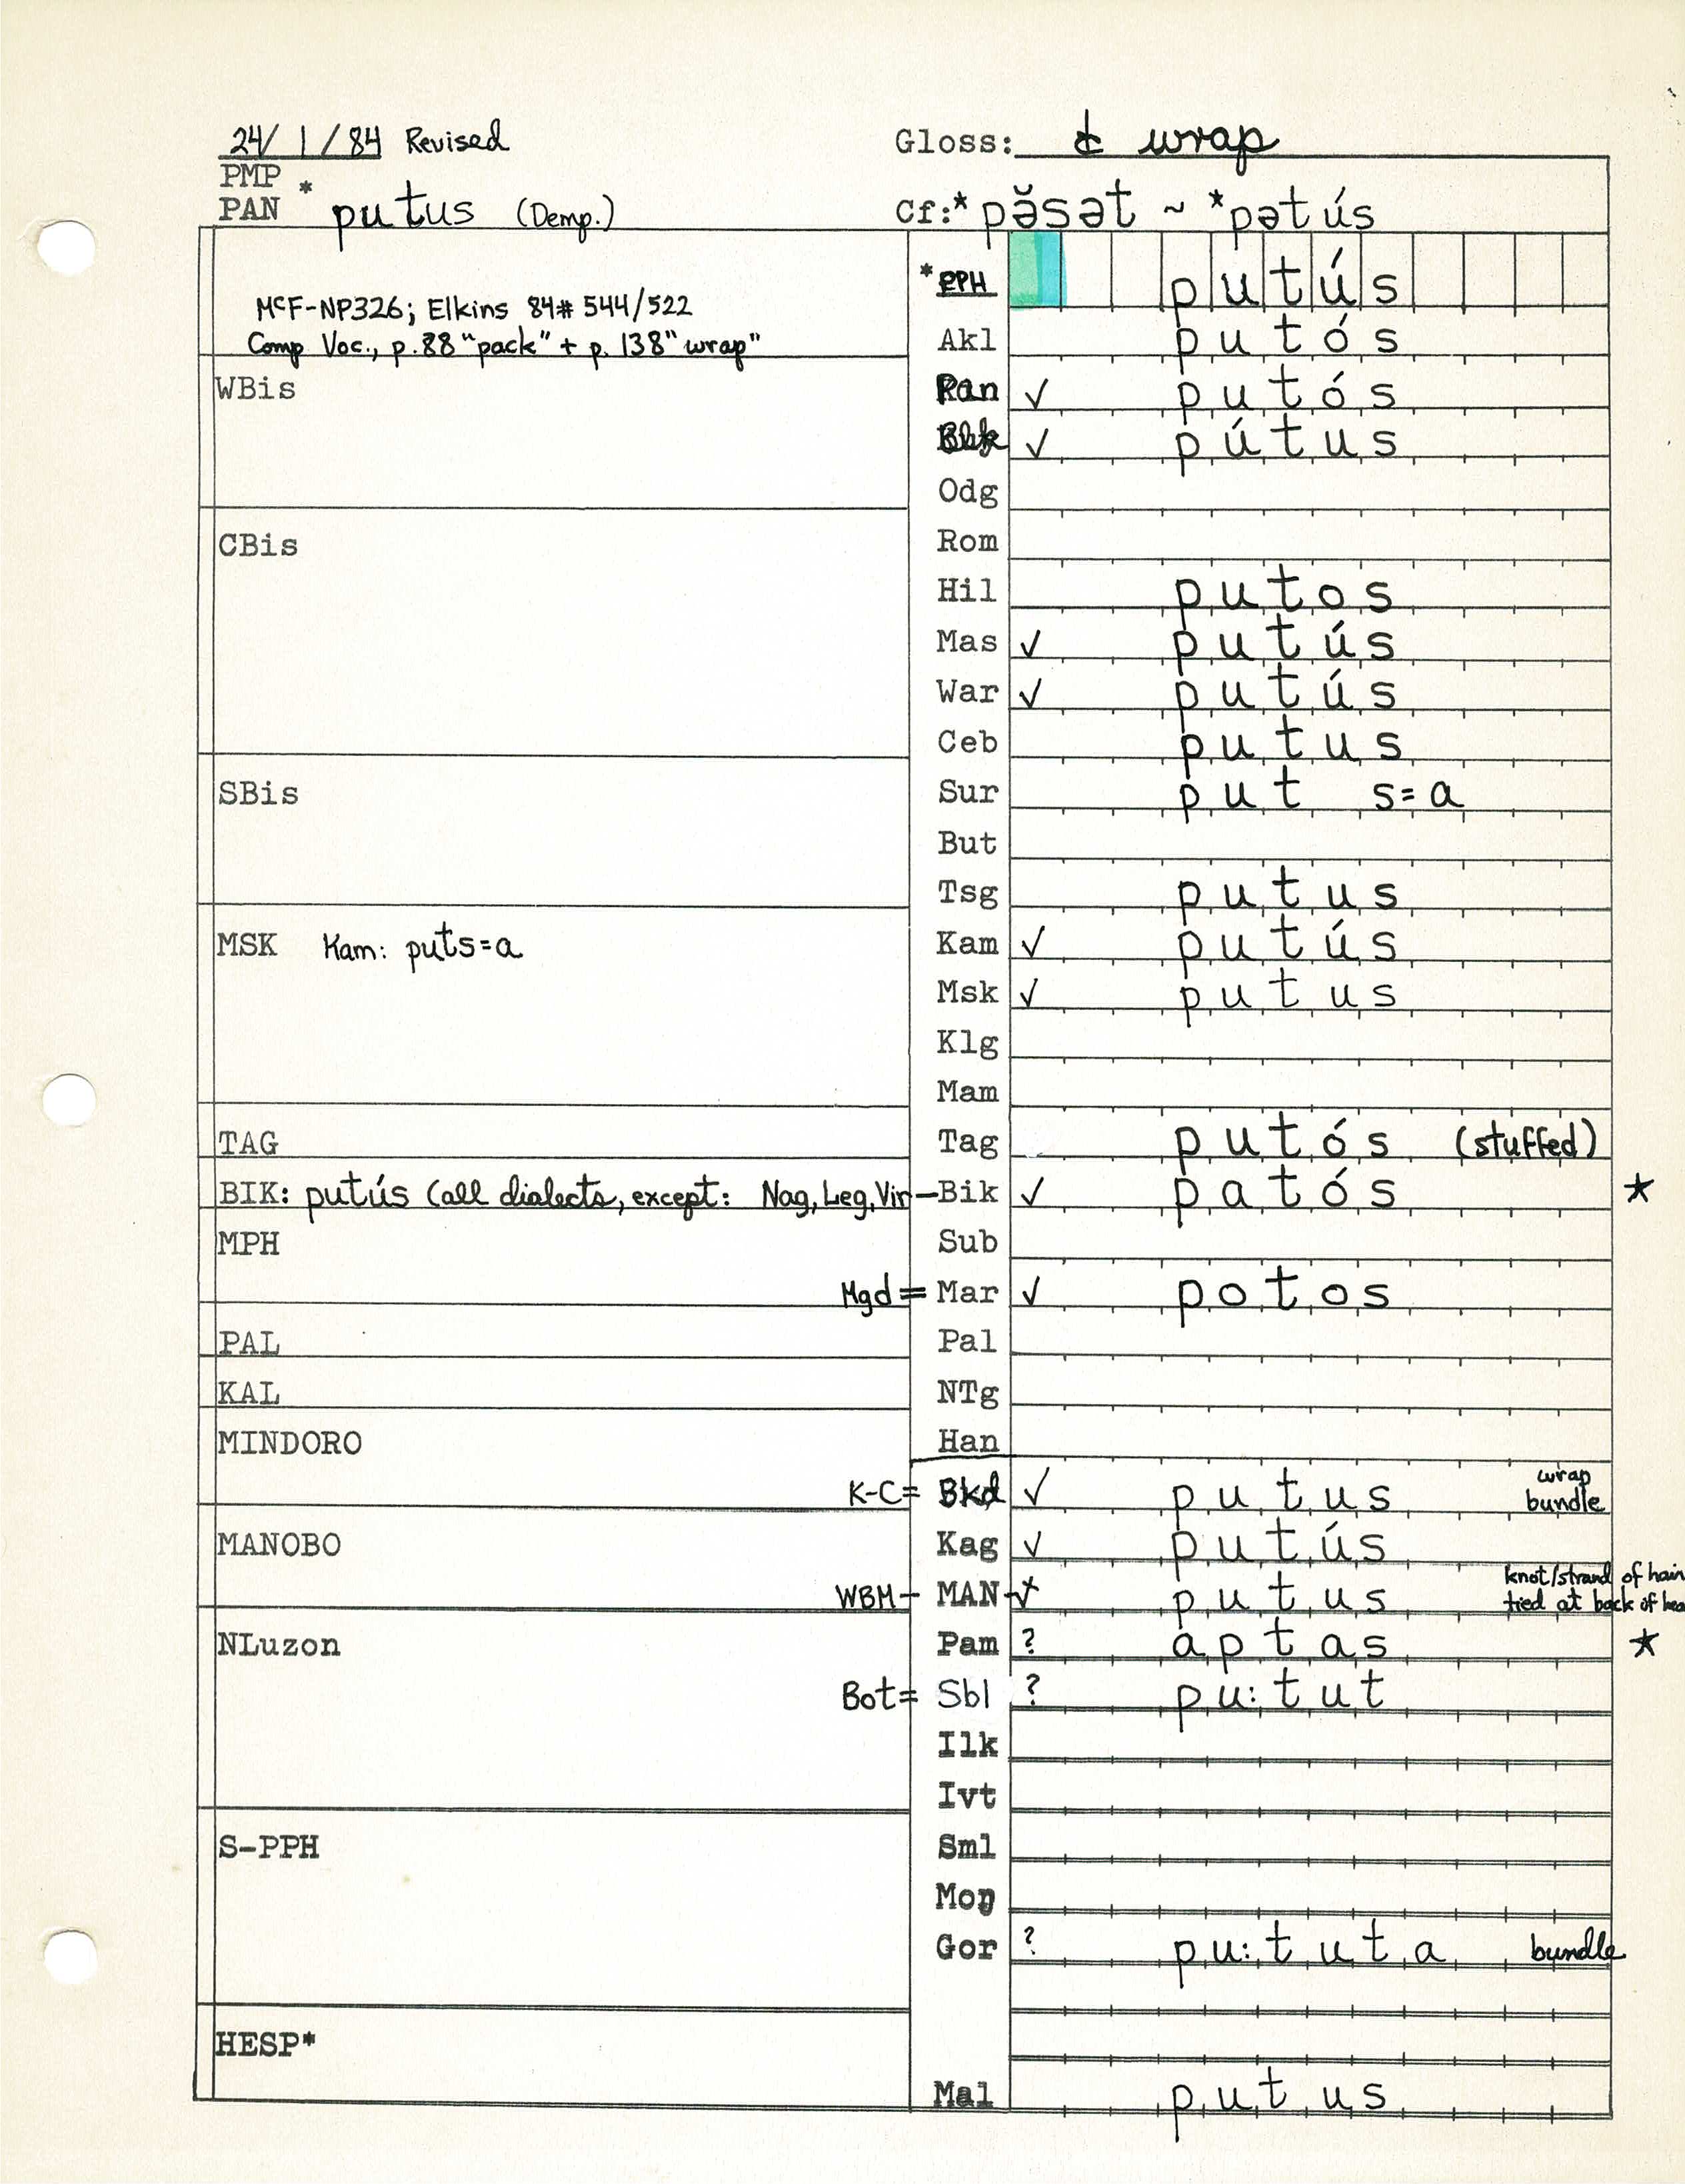 24/1/84 Revised Gloss: ¢ wrap
PMP
PAN * putus (Demp.) Cf:* pə̆sət ~ *pətús
*PPH putús
McF-NP326; Elkins 84# 544/522
Comp Voc., p.88 "pack" + p. 138 "wrap" Akl putós
WBis Pan ✓ putós
✓ pútus
Odg
CBis Rom
Hil putos
Mas ✓ putús
War ✓ putús
Ceb putus
SBis Sur put s=a
But
Tsg putus
MSK Kam: puts=a Kam ✓ putús
Msk ✓ putus
Klg
Mam
TAG Tag putós (stuffed)
BIK: putús (all dialects, except: Nag, Leg, Vir — Bik ✓ patós ★
MPH Sub
Mgd = Mar ✓ potos
PAL Pal
KAL NTg
MINDORO Han
K-C = Bkd ✓ putus wrap bundle
MANOBO Kag ✓ putús
WBM — MAN putus knot/strand of hair
tied at back of hea
NLuzon Pam ? aptas ★
Bot = Sbl ? pu:tut
Ilk
Ivt
S-PPH Sml
Moŋ
Gor ? pu:tuta bundle
HESP*
Mal putus